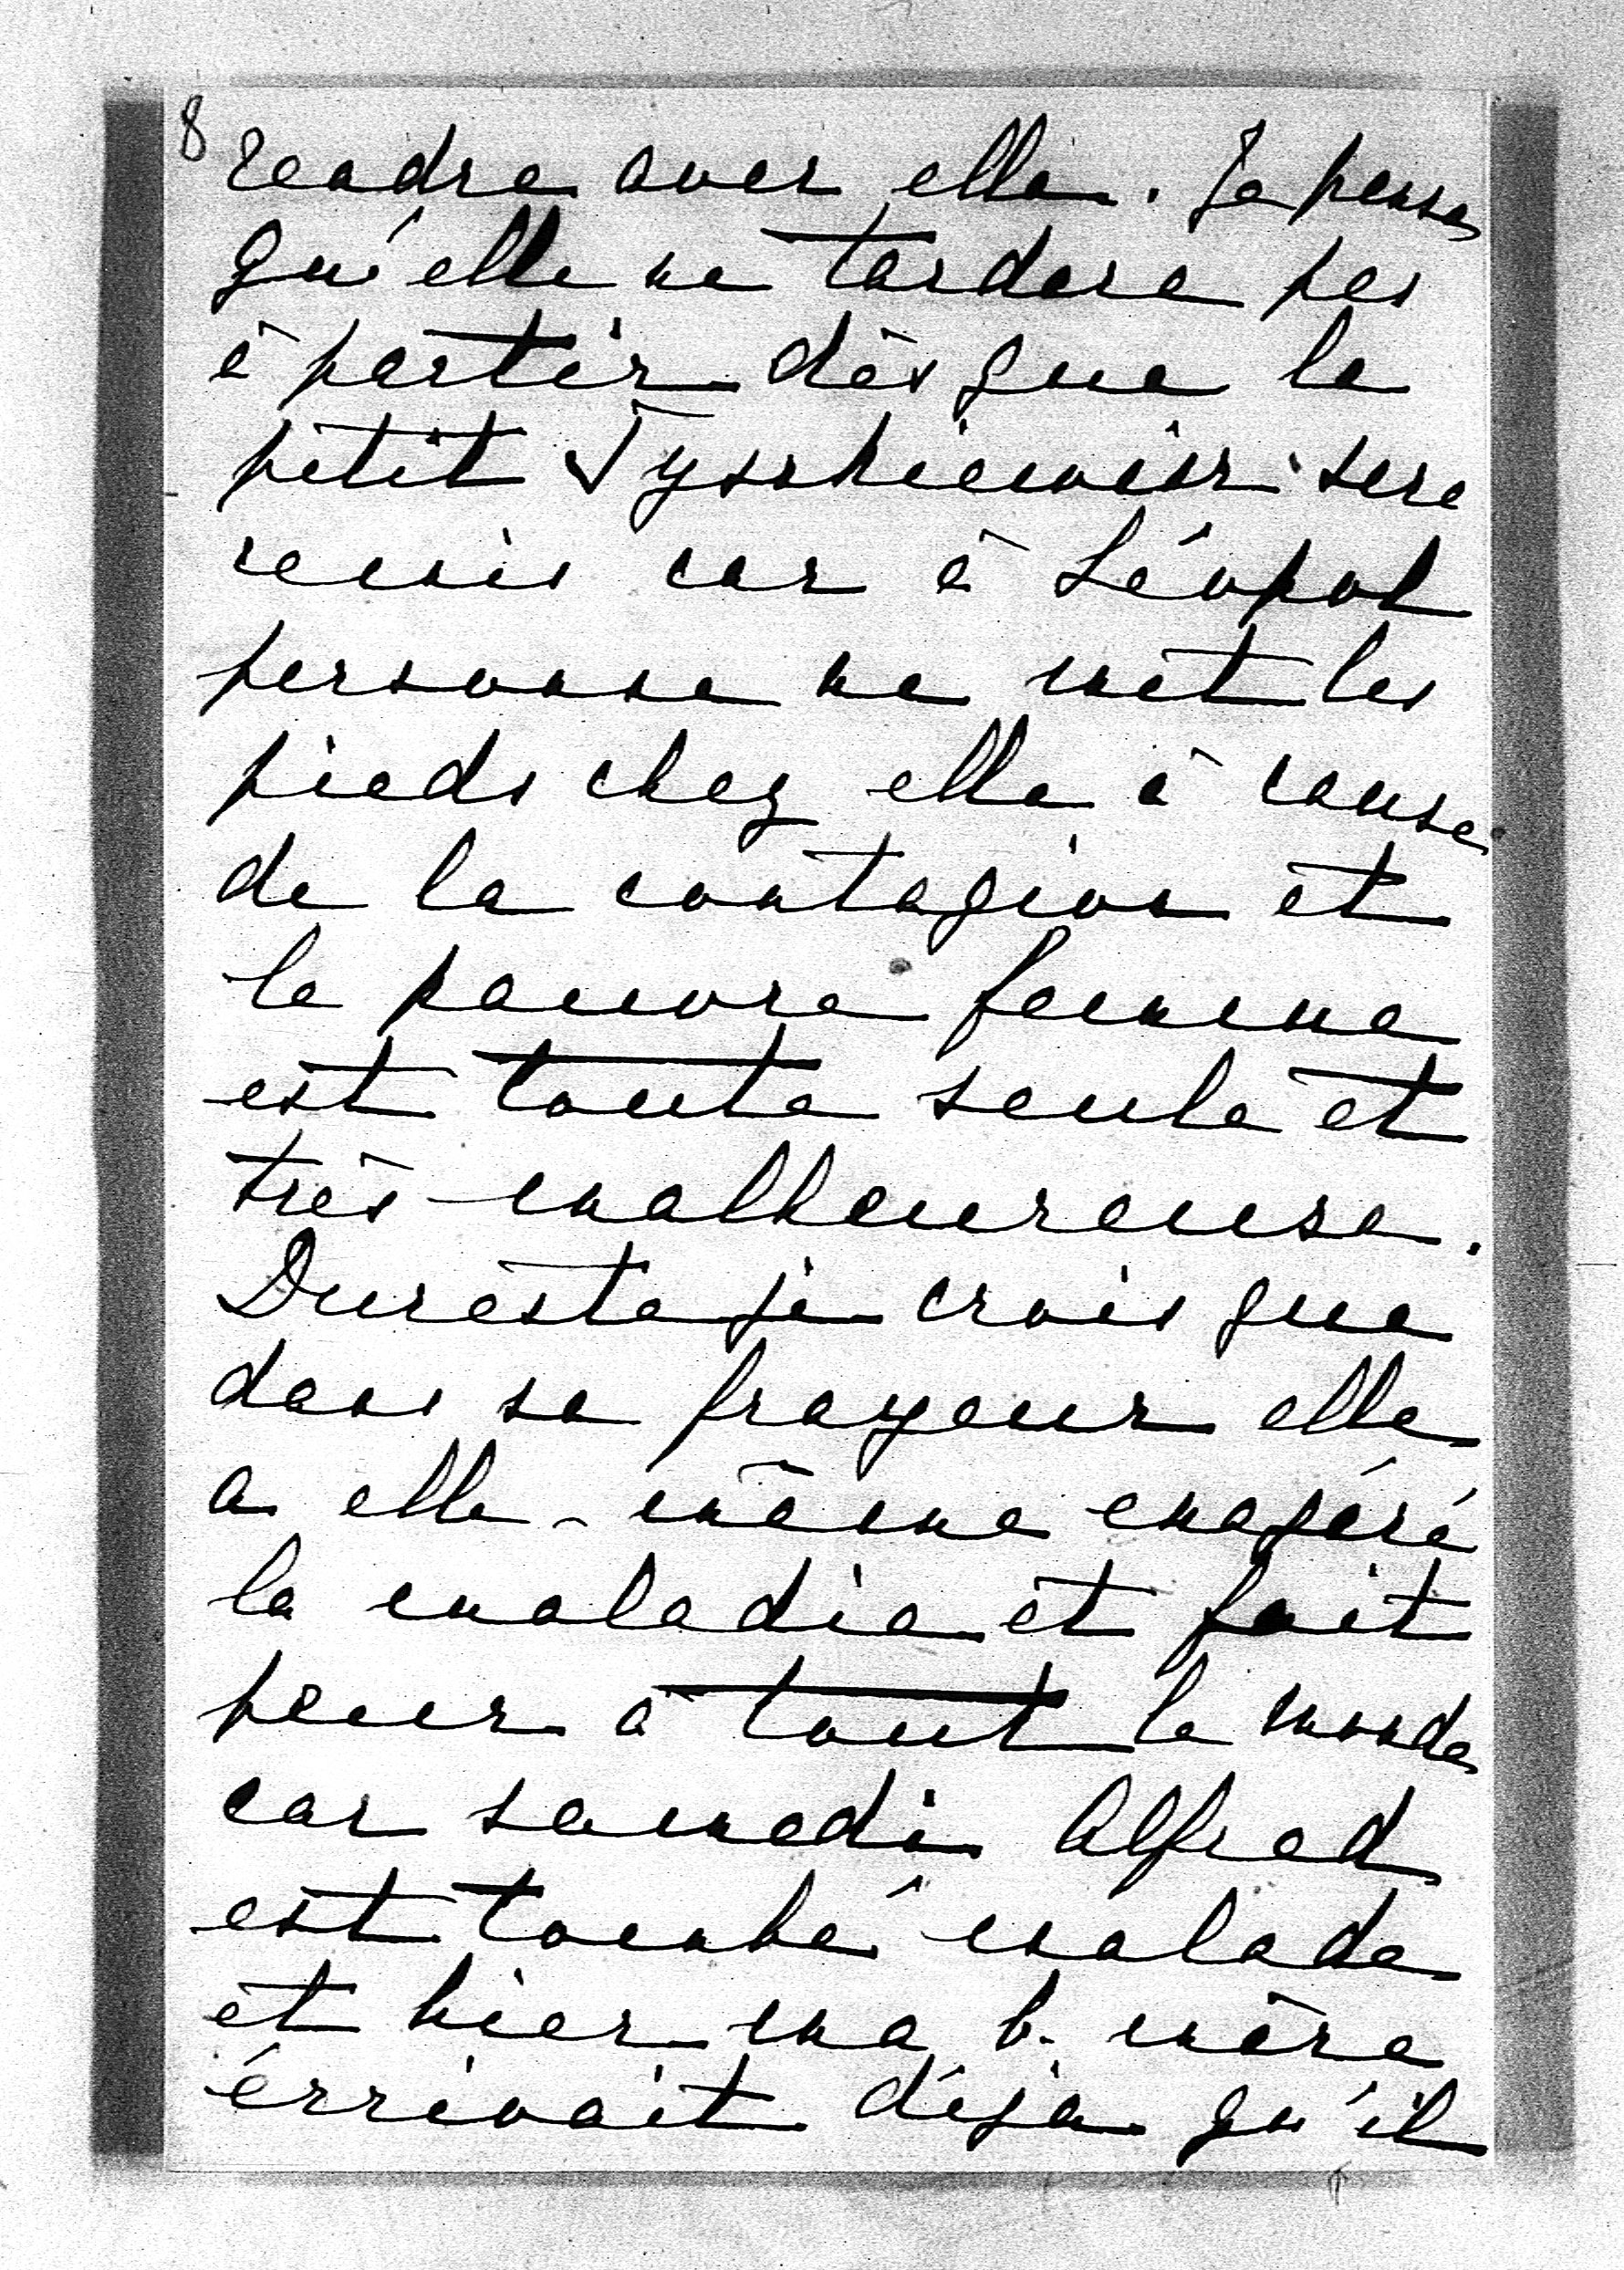 8
rendre avec elle. Je pense
qu'elle ne tardera pas
à partir dès que le
petit Tyszkiewicz sera
remis car à Léopol
personne ne met les
pieds chez elle à cause
de la contagion et
la pauvre femme
est toute seule et
très malheureuse.
Dureste je crois que
dans sa frayeur elle
a elle-même exagéré
la maladie et fait
peur à tout le monde
car samedi Alfred
est tombé malade
et hier ma b. mère
écrivait déja qu'il